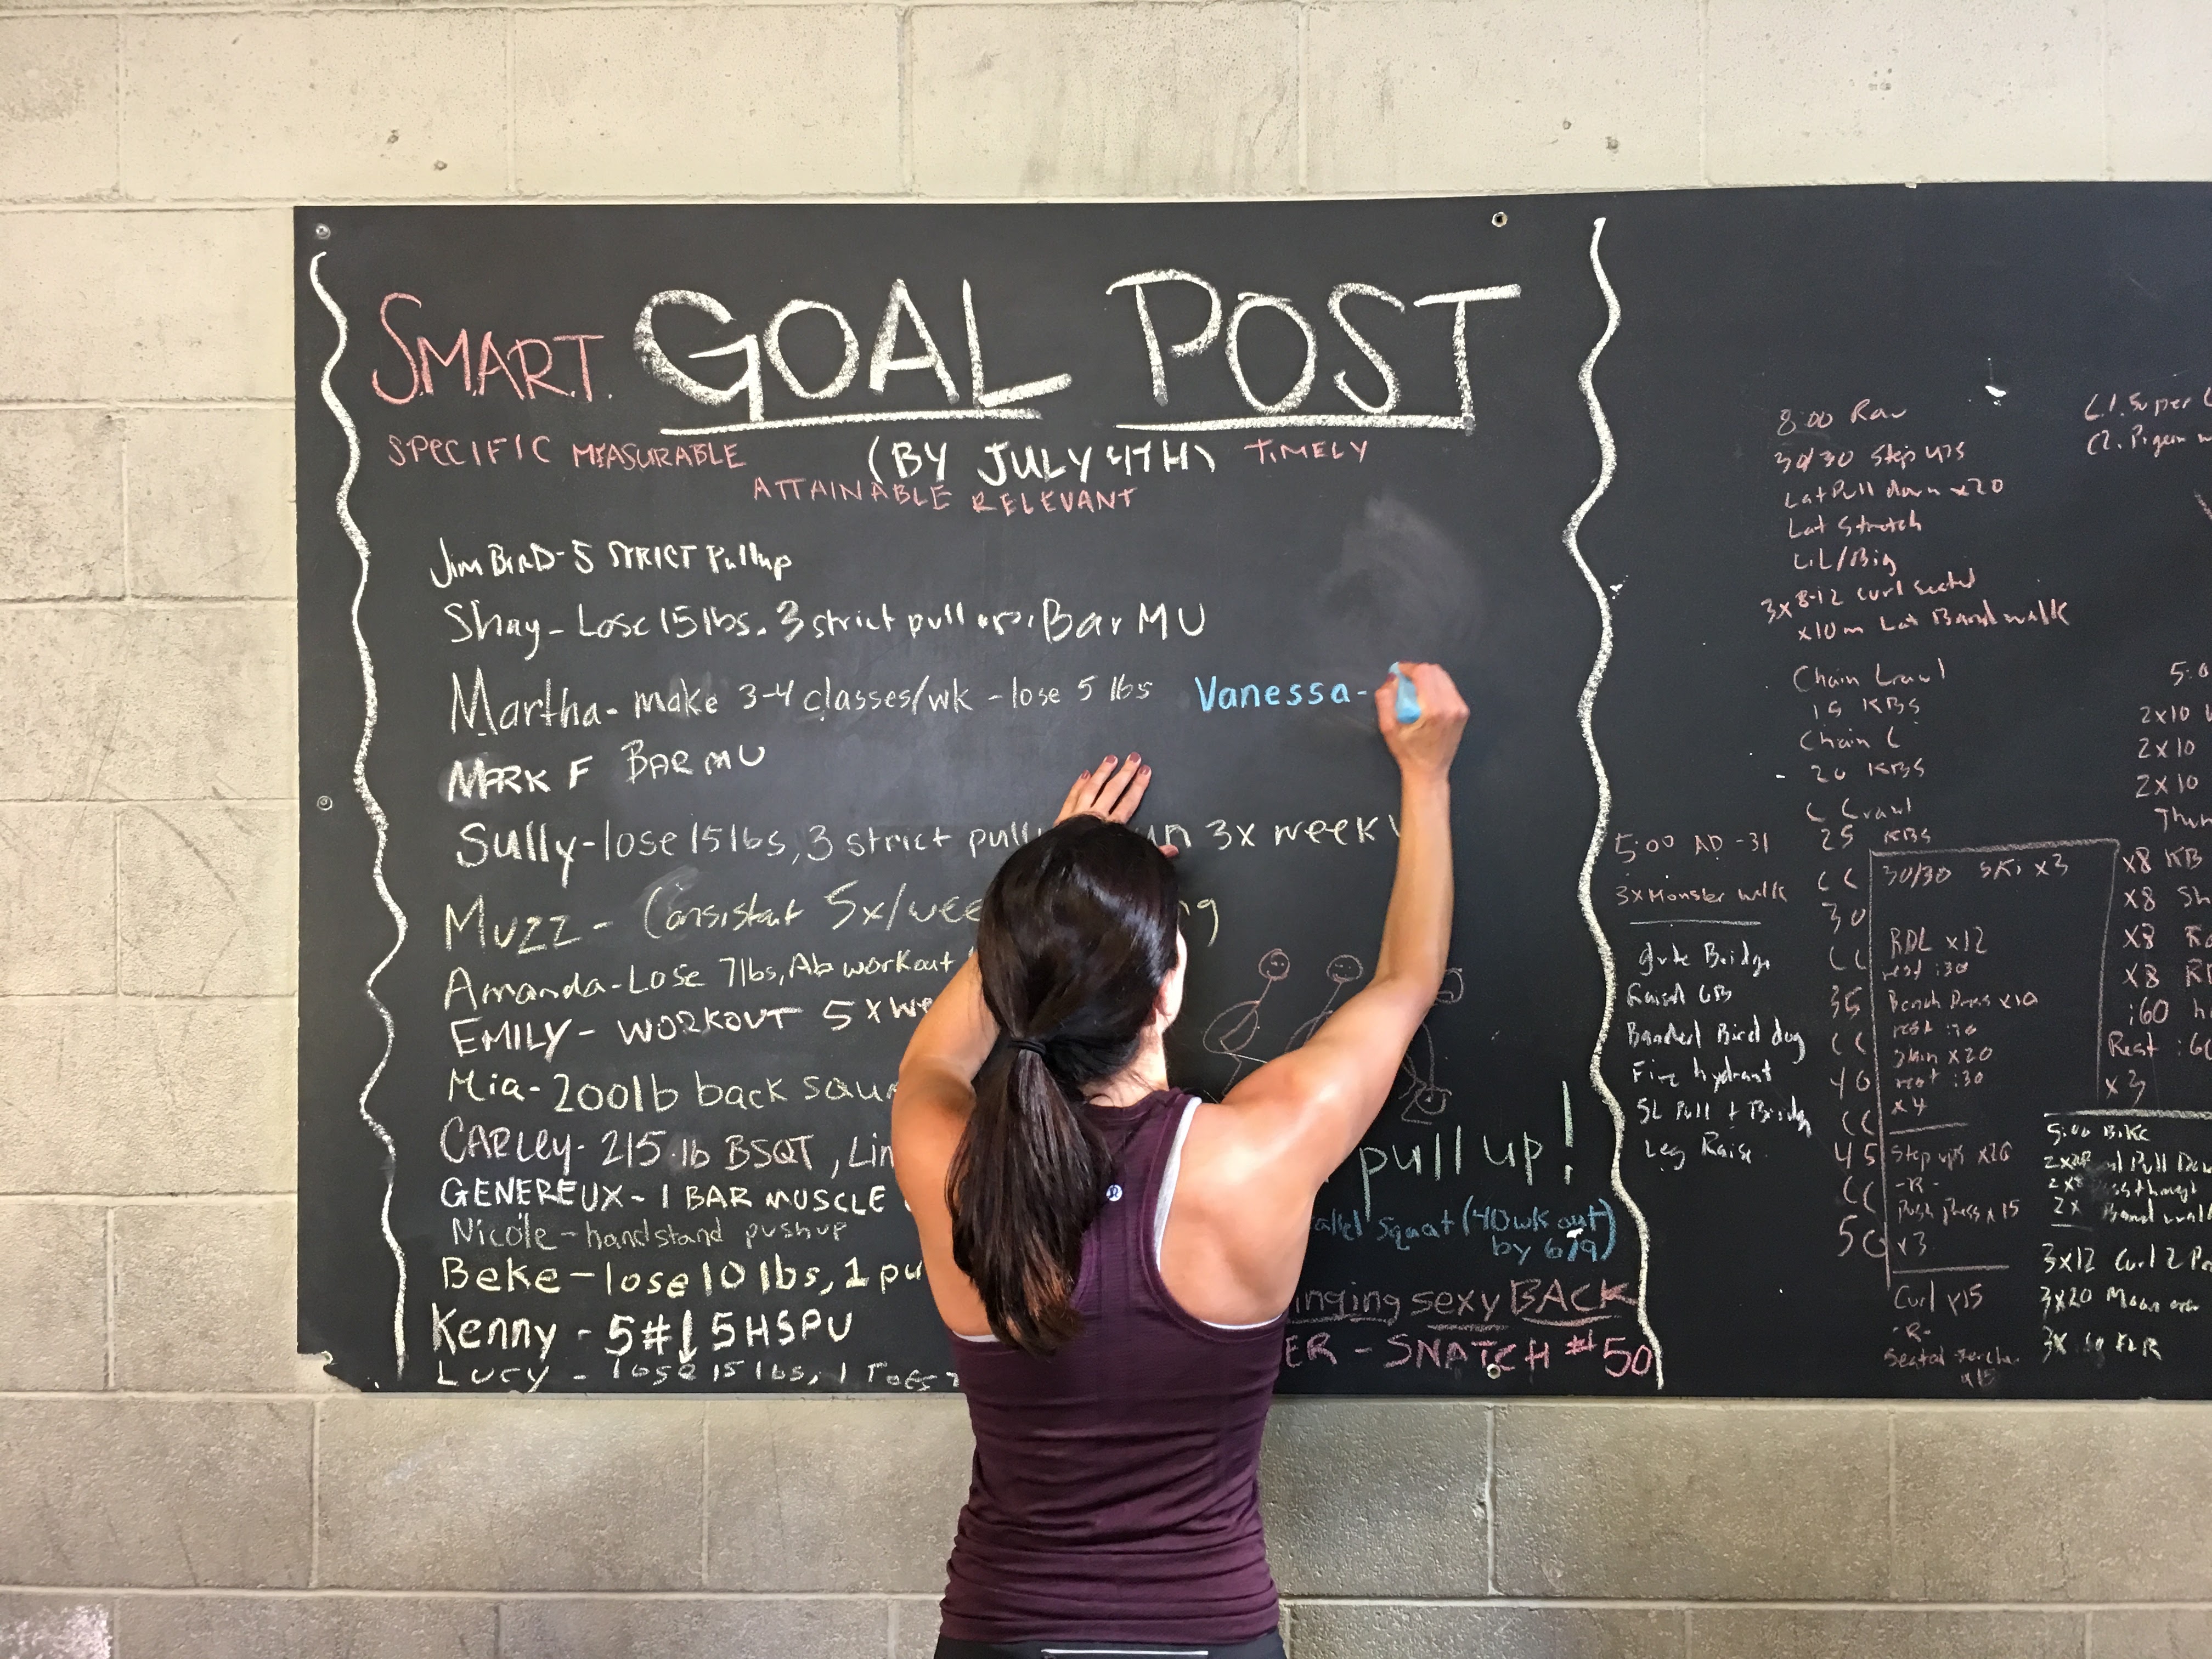 S.M.A.R.T. GOAL POST
SPECIFIC MEASURABLE (BY JULY 4TH) TIMELY
ATTAINABLE RELEVANT
Jim BIRD - 5 STRICT Pullup
Shay - Lose 15 lbs. 3 strict pull ups, Bar MU
Martha - make 3-4 classes/wk - lose 5 lbs
Vanessa -
MARK F BAR MU
Sully - lose 15 lbs, 3 strict 3x week
Muzz - Consistent 5x/
Amanda - Lose 7lbs, Ab workout
EMILY - WORKOUT 5 x
Mia - 200lb back
CARLEY - 215 lb BSQT,
pull up!
GENEREUX - 1 BAR MUSCLE
squat (40 wk out
by 6/9)
Nicole - handstand pushup
Beke - lose 10 lbs, 1
sexy BACK
Kenny - 5#↓ 5 HSPU
- SNATCH #150
Lucy - lose 15 lbs, 1
8:00 Row
30/30 Step ups
Lat Pull down x20
Lat Stretch
LiL/Big
3x 8-12 curl seated
x10m Lat Band walk
Chain Crawl
15 KBS
Chain C
20 KBS
C Crawl
25 KBS
CC
30
CC
35
CC
40
CC
45
CC
50
5:00 AD - 31
3x Monster walk
glute Bridge
Raised GB
Banded Bird dog
Fire hydrant
SL Pull + Bridg
Leg Raise
30/30 SKi x3
RDL x12
rest :30
Bench Press x10
x20
rest :30
x4
Step ups x20
-R-
Push press x15
x3
Curl x15
-R-
Seated
x15
L1. Super
L2. Pigeon
2x10
2x10
2x10
x8 KB
x8
x8
x8
:60
Rest
x3
5:00 BiKe
Pull
2x Band
3x12 Curl
3x20
3x